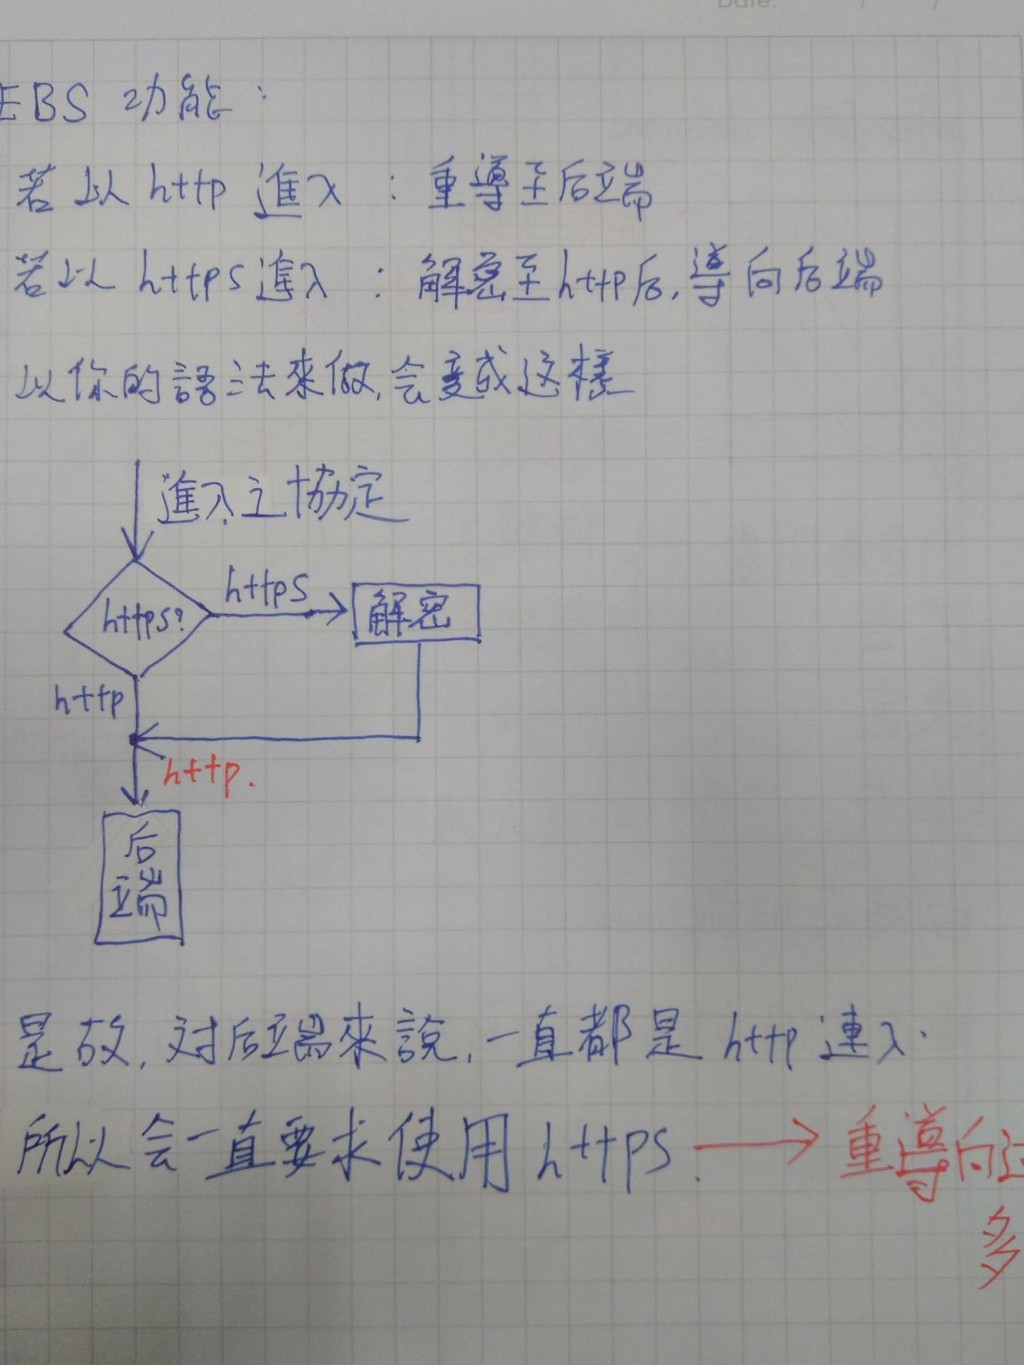 Date: / /
EBS 功能：
若以 http 進入 : 重導至后端
若以 https 進入 : 解密至http后,導向后端
以你的語法來做,会变成这樣
進入之協定
https?
https
解密
http
http.
后端
是故,对后端來說,一直都是 http 連入.
所以会一直要求使用 https. → 重導向过
多